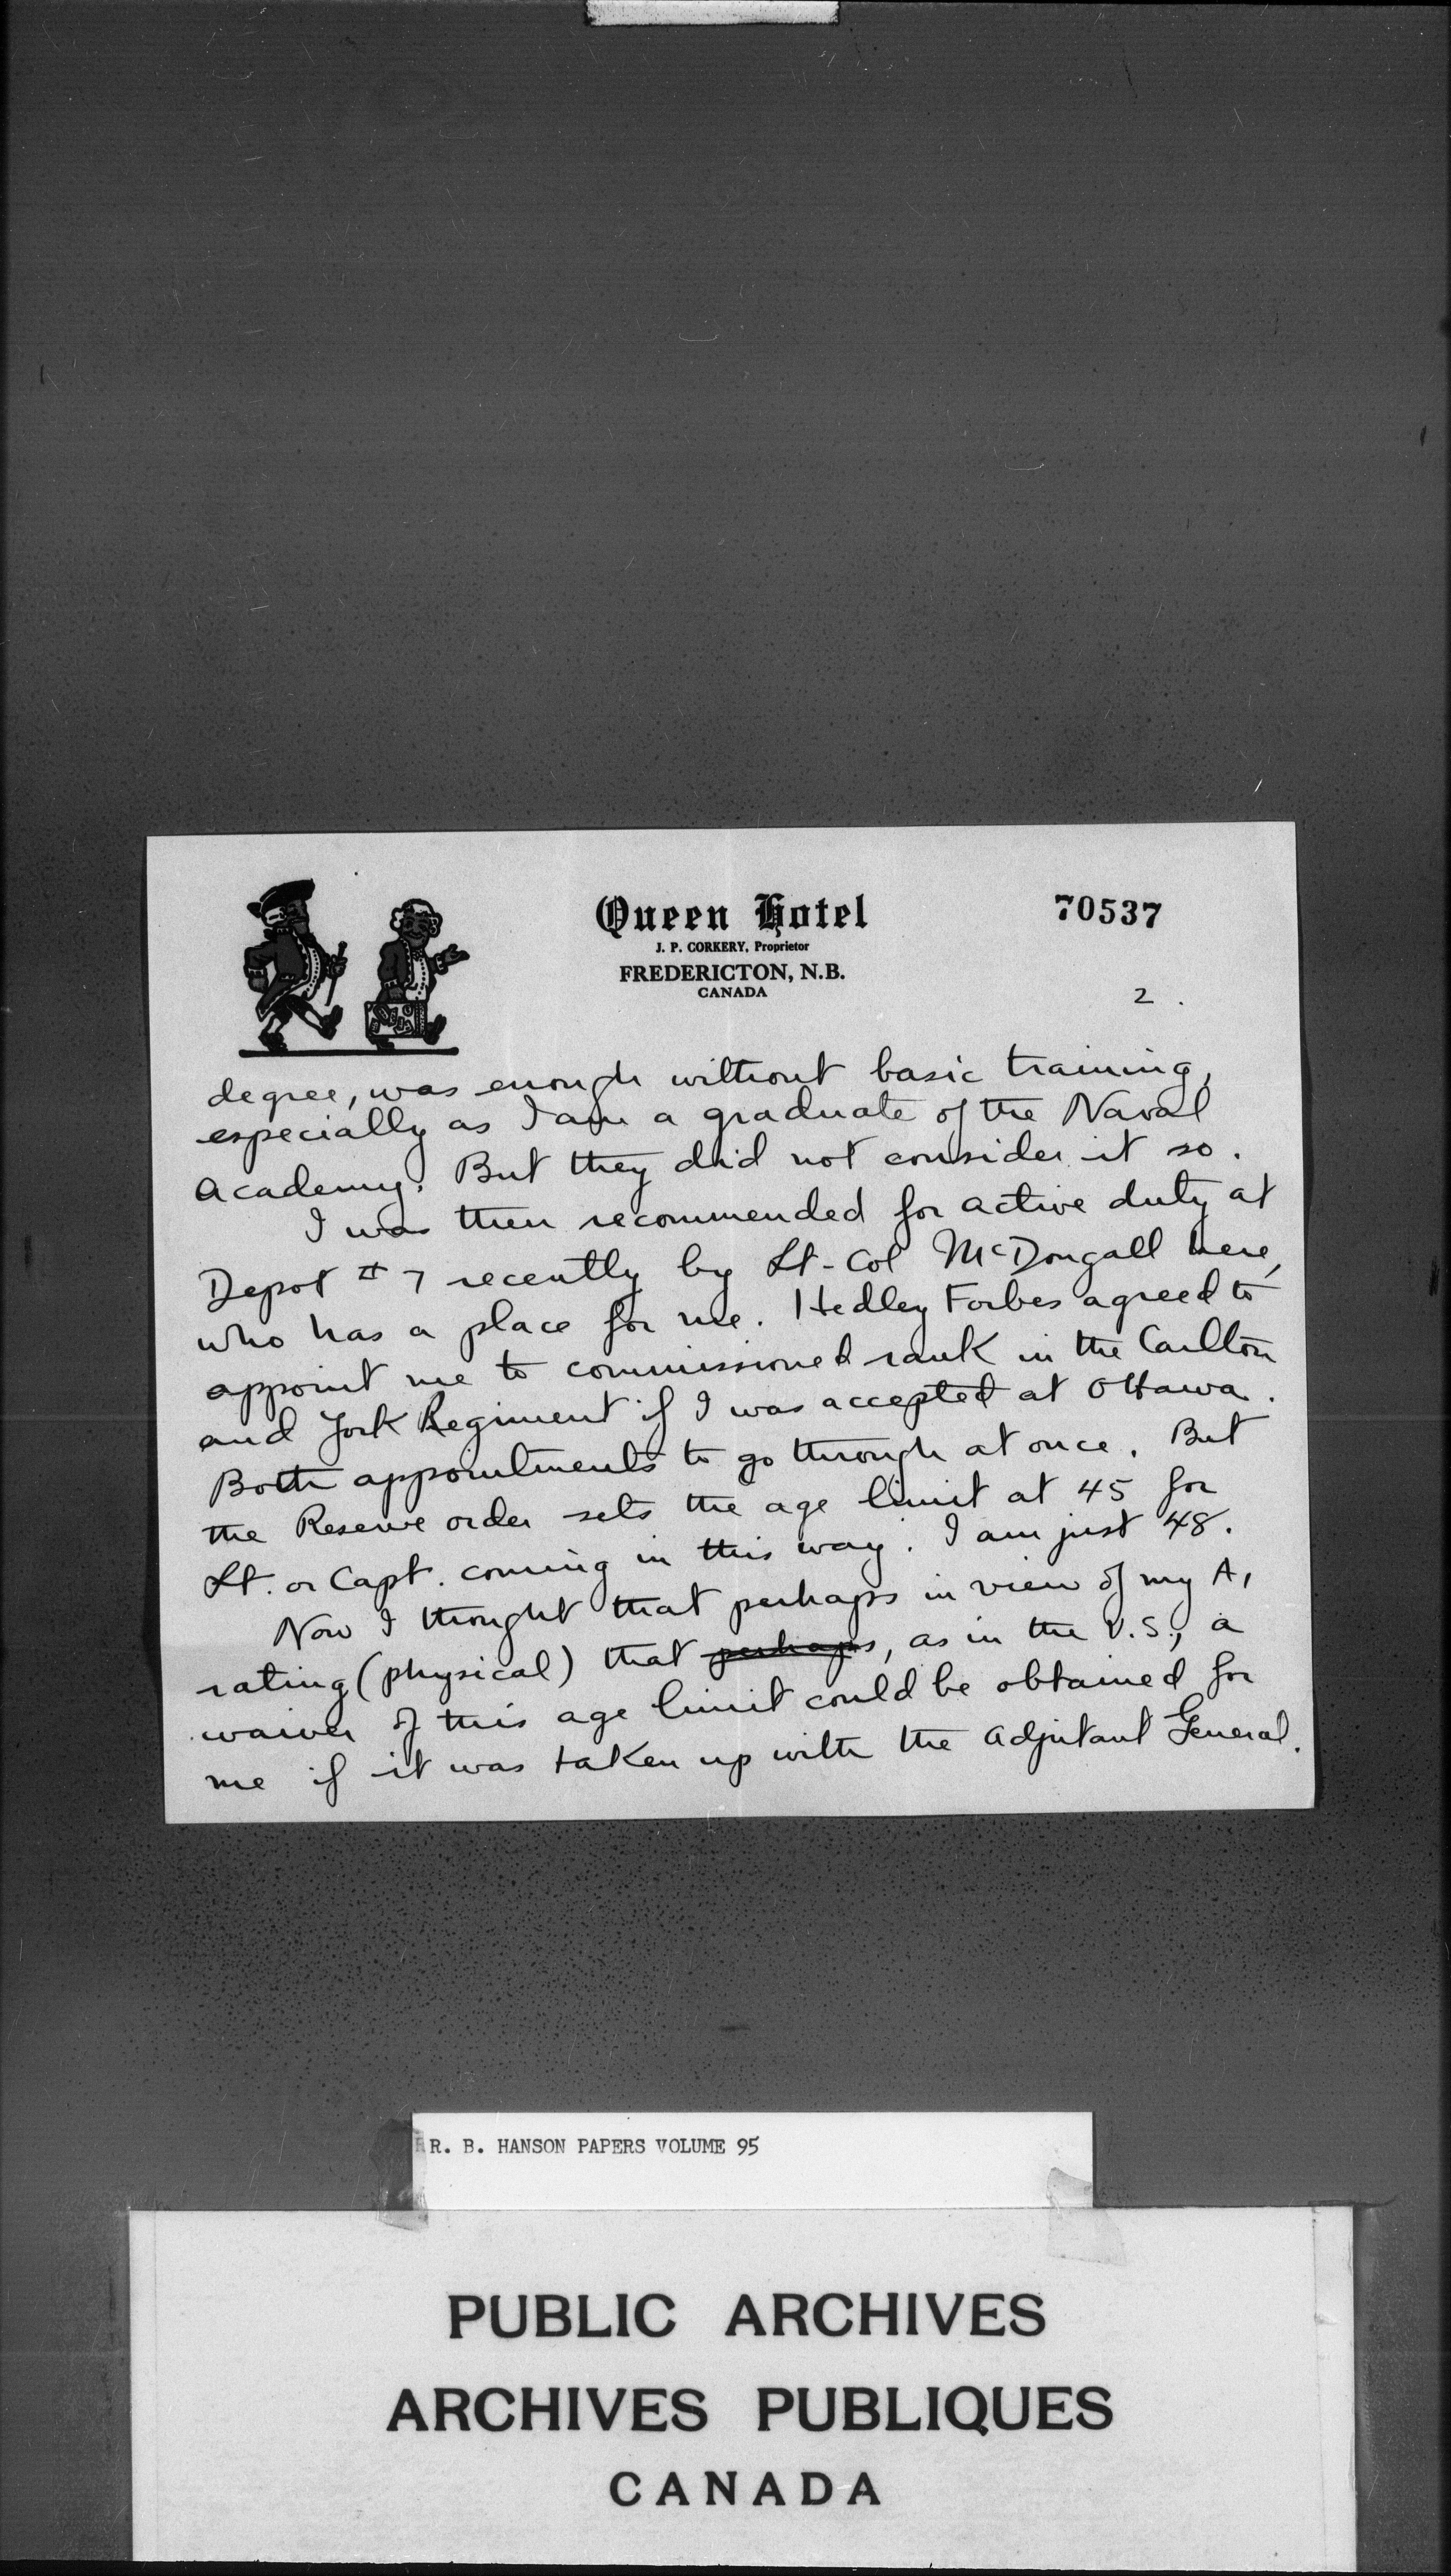 Queen Hotel
J. P. CORKERY, Proprietor
FREDERICTON, N.B.
CANADA
70537
2.
degree, was enough without basic training,
especially as I am a graduate of the Naval
Academy. But they did not consider it so.
I was then recommended for active duty at
Depot # 7 recently by Lt-Col McDougall here,
who has a place for me. Hedley Forbes agreed to
appoint me to commissioned rank in the Carlton
and York Regiment if I was accepted at Ottawa.
Both appointments to go through at once. But
the Reserve order sets the age limit at 45 for
Lt. or Capt. coming in this way. I am just 48.
Now I thought that perhaps in view of my A1
rating (physical) that perhaps, as in the U.S., a
waiver of this age limit could be obtained for
me if it was taken up with the Adjutant General.
R. B. HANSON PAPERS VOLUME 95
PUBLIC ARCHIVES
ARCHIVES PUBLIQUES
CANADA